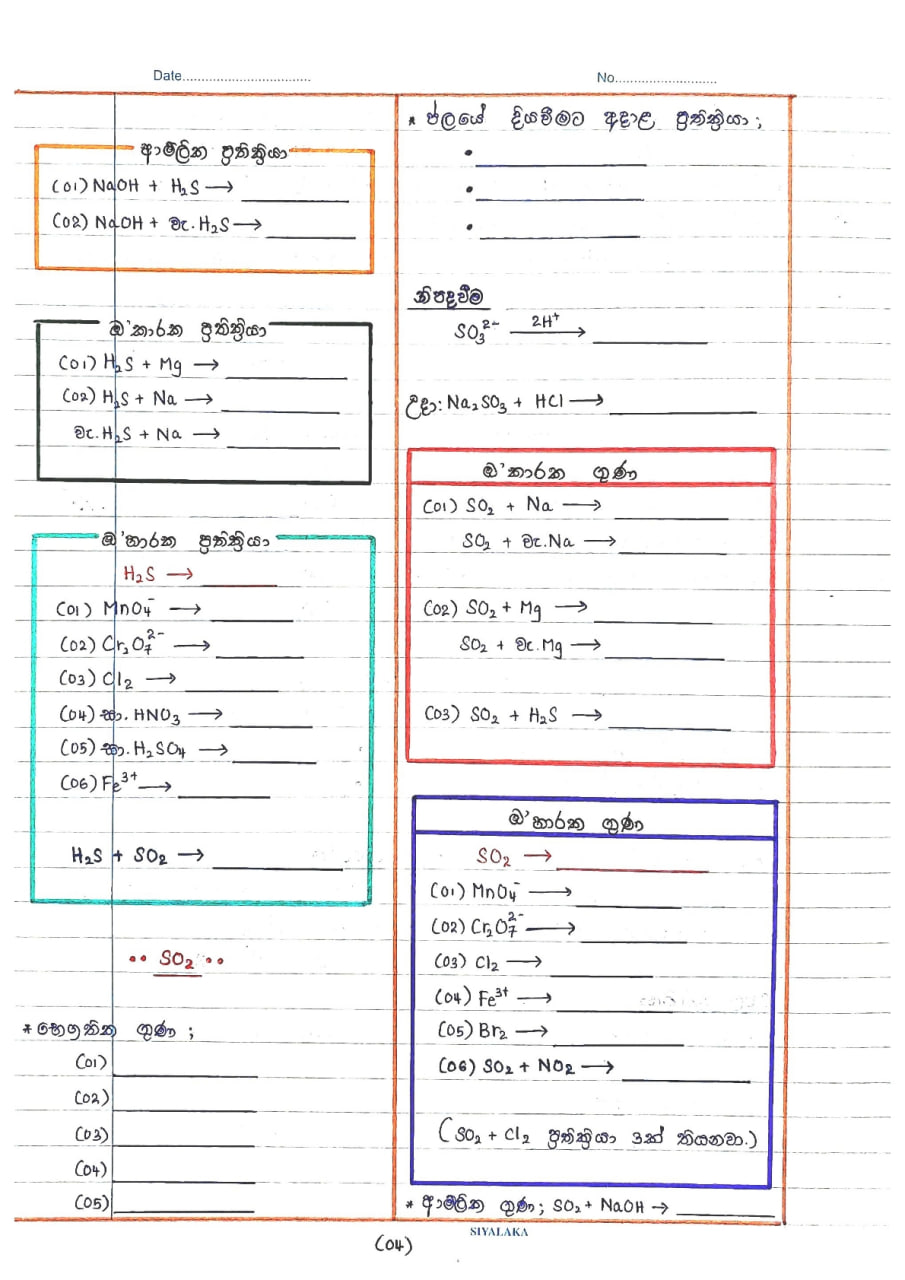 Date................................
No..........................
ආම්ලික ප්‍රතික්‍රියා
(01) NaOH + H₂S →
(02) NaOH + වැ. H₂S →
ඔ'කාරක ප්‍රතික්‍රියා
(01) H₂S + Mg →
(02) H₂S + Na →
වැ. H₂S + Na →
ඔ'හාරක ප්‍රතික්‍රියා
H₂S →
(01) MnO₄⁻ →
(02) Cr₂O₇²⁻ →
(03) Cl₂ →
(04) සා. HNO₃ →
(05) සා. H₂SO₄ →
(06) Fe³⁺ →
H₂S + SO₂ →
•• SO₂ ••
* භෞතික ගුණ ;
(01)
(02)
(03)
(04)
(05)
* ජලයේ දියවීමට අදාළ ප්‍රතික්‍රියා ;
•
•
•
නිපදවීම
SO₃²⁻ 2H⁺ →
උදා: Na₂SO₃ + HCl →
ඔ'කාරක ගුණ
(01) SO₂ + Na →
SO₂ + වැ. Na →
(02) SO₂ + Mg →
SO₂ + වැ. Mg →
(03) SO₂ + H₂S →
ඔ'හාරක ගුණ
SO₂ →
(01) MnO₄⁻ →
(02) Cr₂O₇²⁻ →
(03) Cl₂ →
(04) Fe³⁺ →
(05) Br₂ →
(06) SO₂ + NO₂ →
(SO₂ + Cl₂ ප්‍රතික්‍රියා 3ක් තියනවා.)
* ආම්ලික ගුණ ; SO₂ + NaOH →
SIYALAKA
(04)